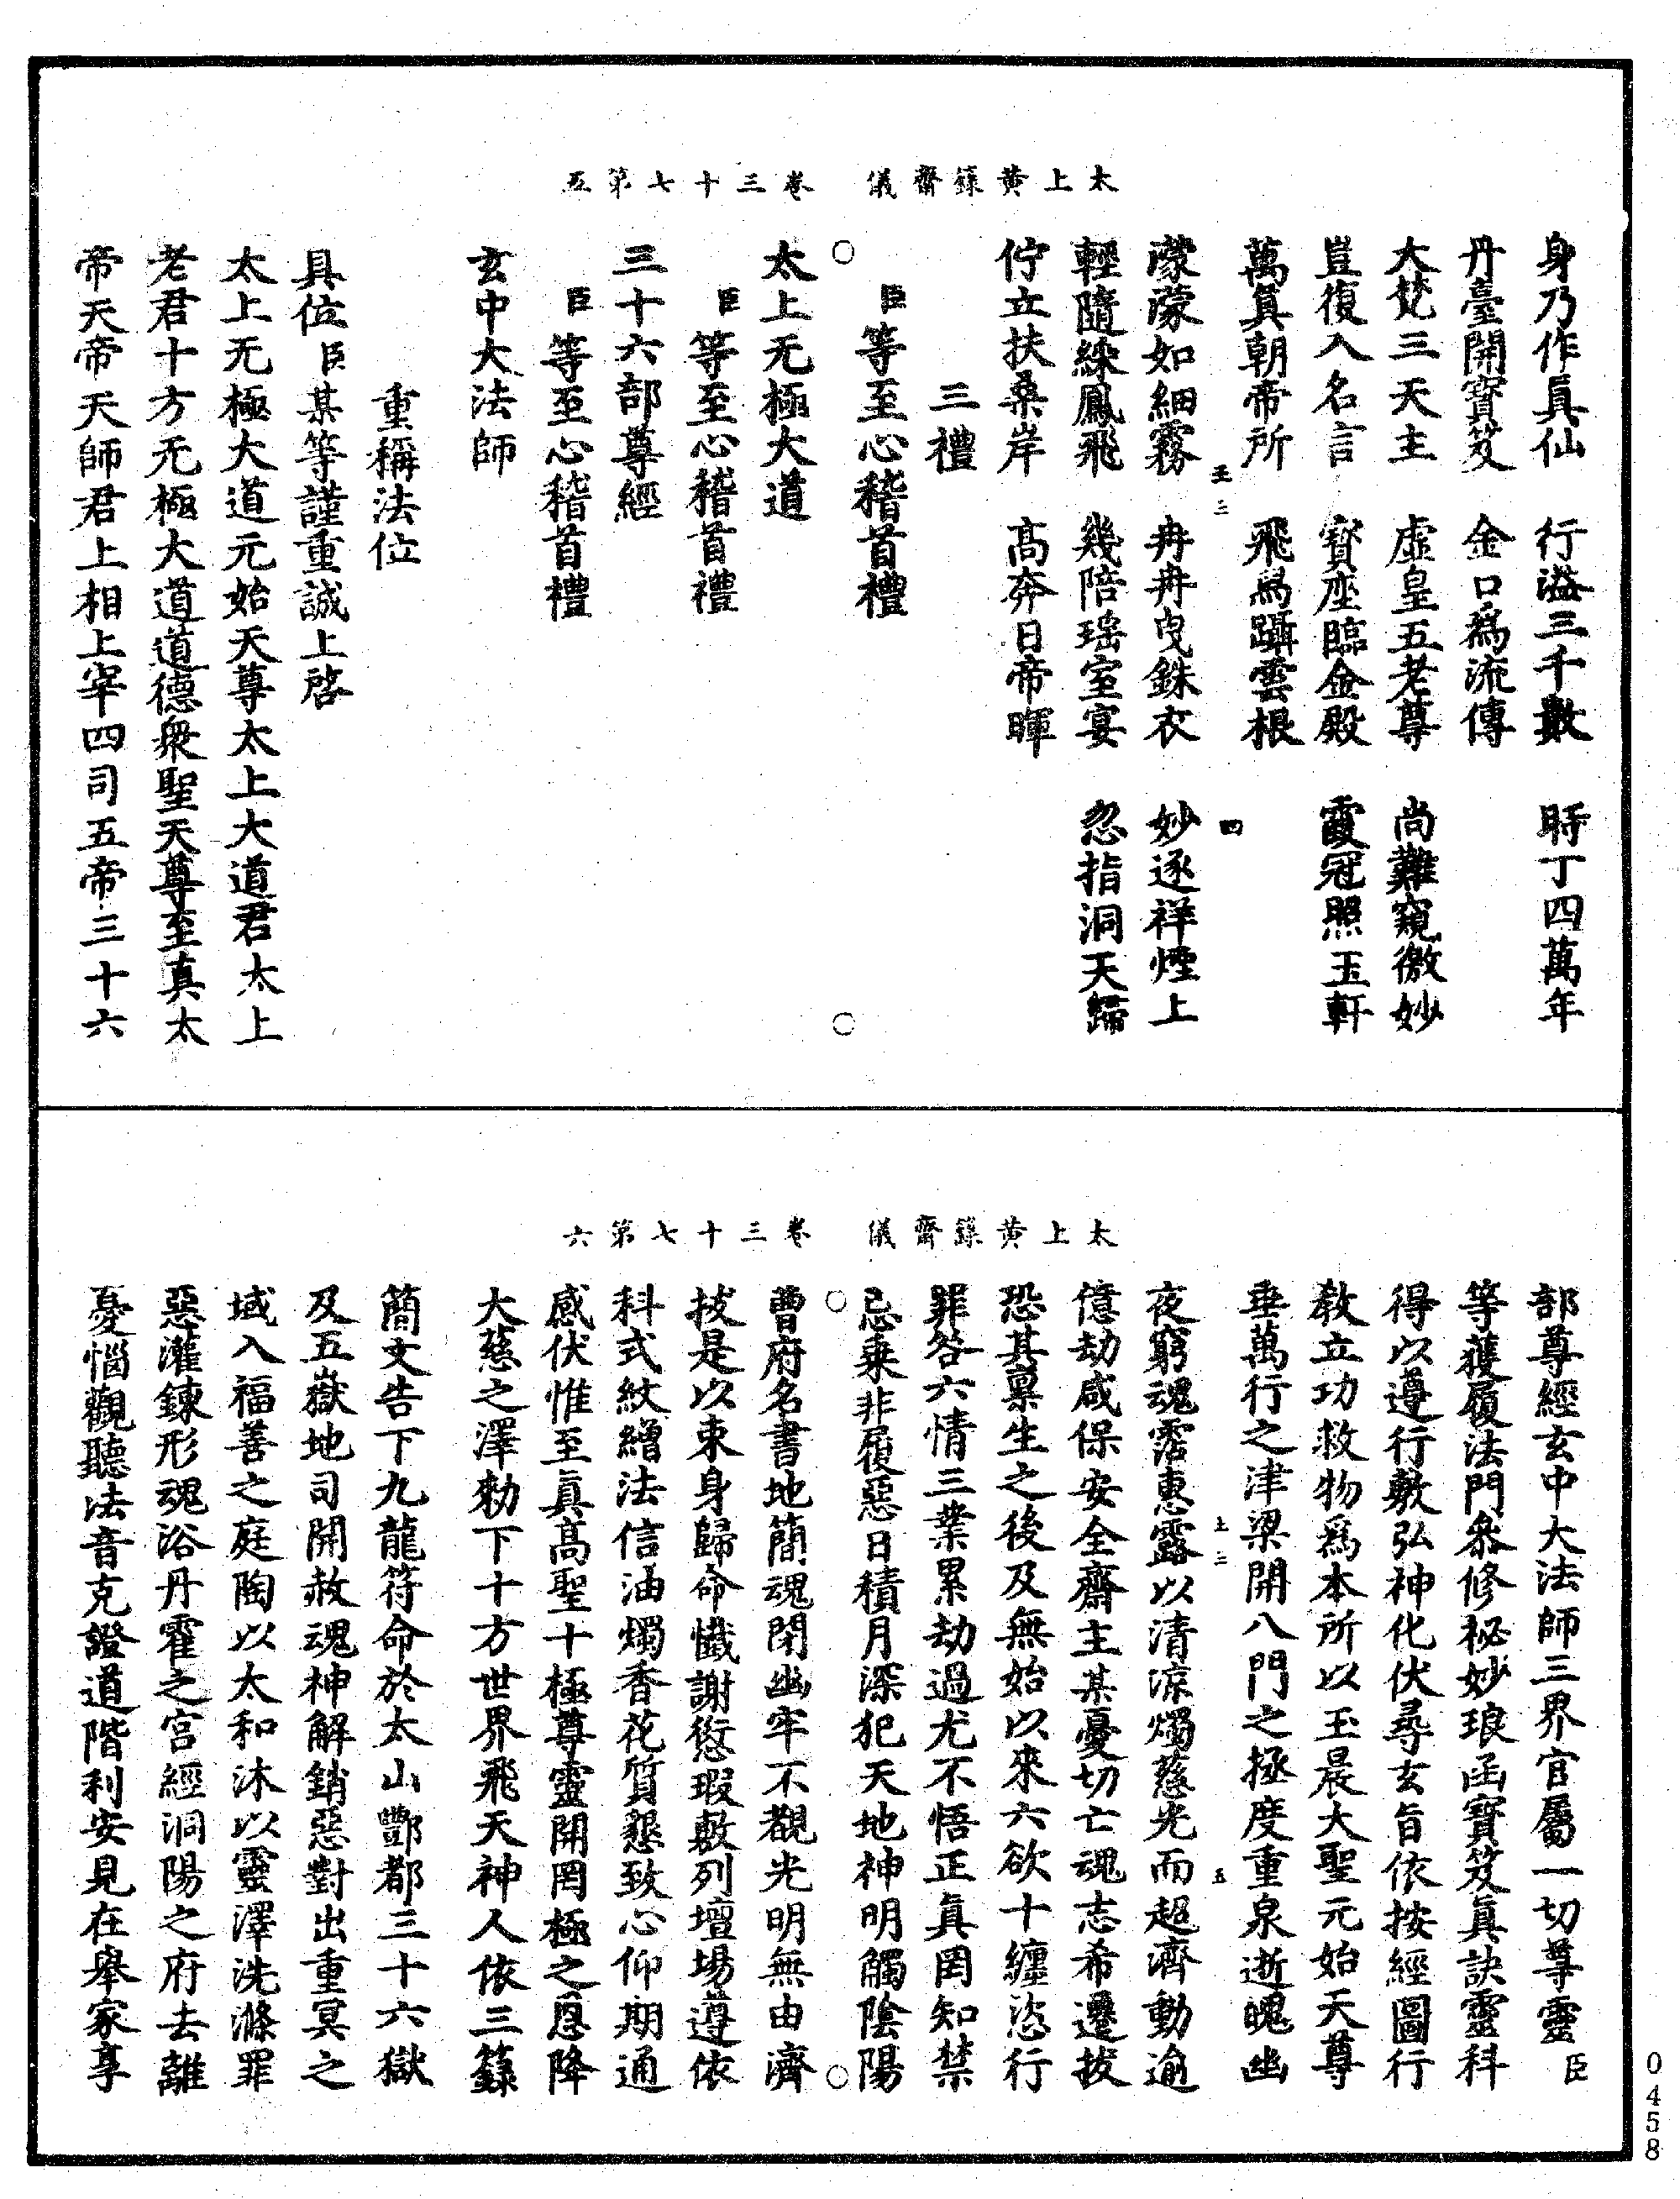 太上黃籙齋儀　卷三十七第五
身乃作真仙　行溢三千數　時丁四萬年
丹臺開寶笈　金口為流傳
大梵三天主　虛皇五老尊　尚難窺微妙
豈復入名言　寶座臨金殿　霞冠照玉軒
萬真朝帝所　飛舄躡雲根
王三　四
濛濛如細霧　冉冉曳銖衣　妙逐祥煙上
輕隨綵鳳飛　幾陪瑤室宴　忽指洞天歸
佇立扶桑岸　高奔日帝暉
三禮
臣等至心稽首禮
太上无極大道
臣等至心稽首禮
三十六部尊經
臣等至心稽首禮
玄中大法師
重稱法位
具位臣某等謹重誠上啓
太上无極大道元始天尊太上大道君太上
老君十方无極大道道德眾聖天尊至真太
帝天帝天師君上相上宰四司五帝三十六
太上黃籙齋儀　卷三十七第六
部尊經玄中大法師三界官屬一切尊靈臣
等獲履法門叅修祕妙琅函寶笈真訣靈科
得以遵行敷弘神化伏尋玄旨依按經圖行
教立功救物為本所以玉晨大聖元始天尊
垂萬行之津梁開八門之拯度重泉逝魄幽
三　五
夜窮魂霑惠露以清涼燭慈光而超濟動逾
億劫咸保安全齋主某憂切亡魂志希遷拔
恐其稟生之後及無始以來六欲十纏恣行
罪咎六情三業累劫過尤不悟正真罔知禁
忌乘非履惡日積月深犯天地神明觸陰陽
曹府名書地簡魂閉幽牢不覩光明無由濟
拔是以束身歸命懺謝愆瑕敷列壇場遵依
科式紋繒法信油燭香花質懇致心仰期通
感伏惟至真高聖十極尊靈開罔極之恩降
大慈之澤勑下十方世界飛天神人依三籙
簡文告下九龍符命於太山酆都三十六獄
及五嶽地司開赦魂神解銷惡對出重冥之
域入福善之庭陶以太和沐以靈澤洗滌罪
惡灌鍊形魂浴丹霍之宮經洞陽之府去離
憂惱觀聽法音克證道階利安見在舉家享
0458